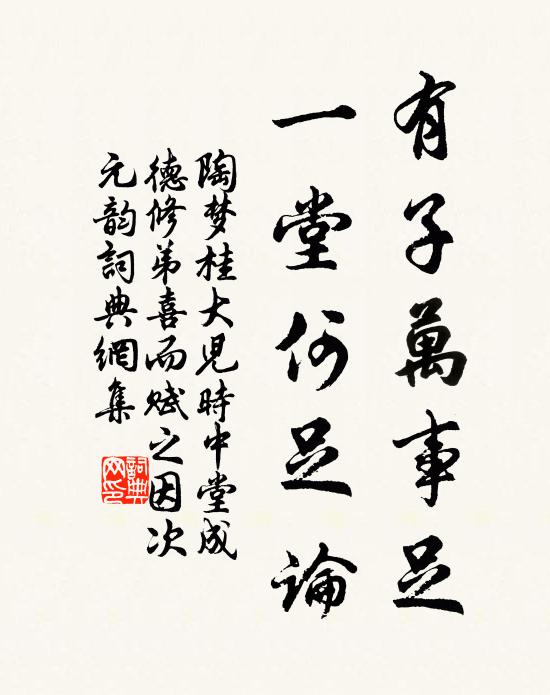 有子萬事足
一堂何足論
陶梦桂大児時中堂成
德修弟喜而赋之因次
元韵詞典網集
詞典
网印